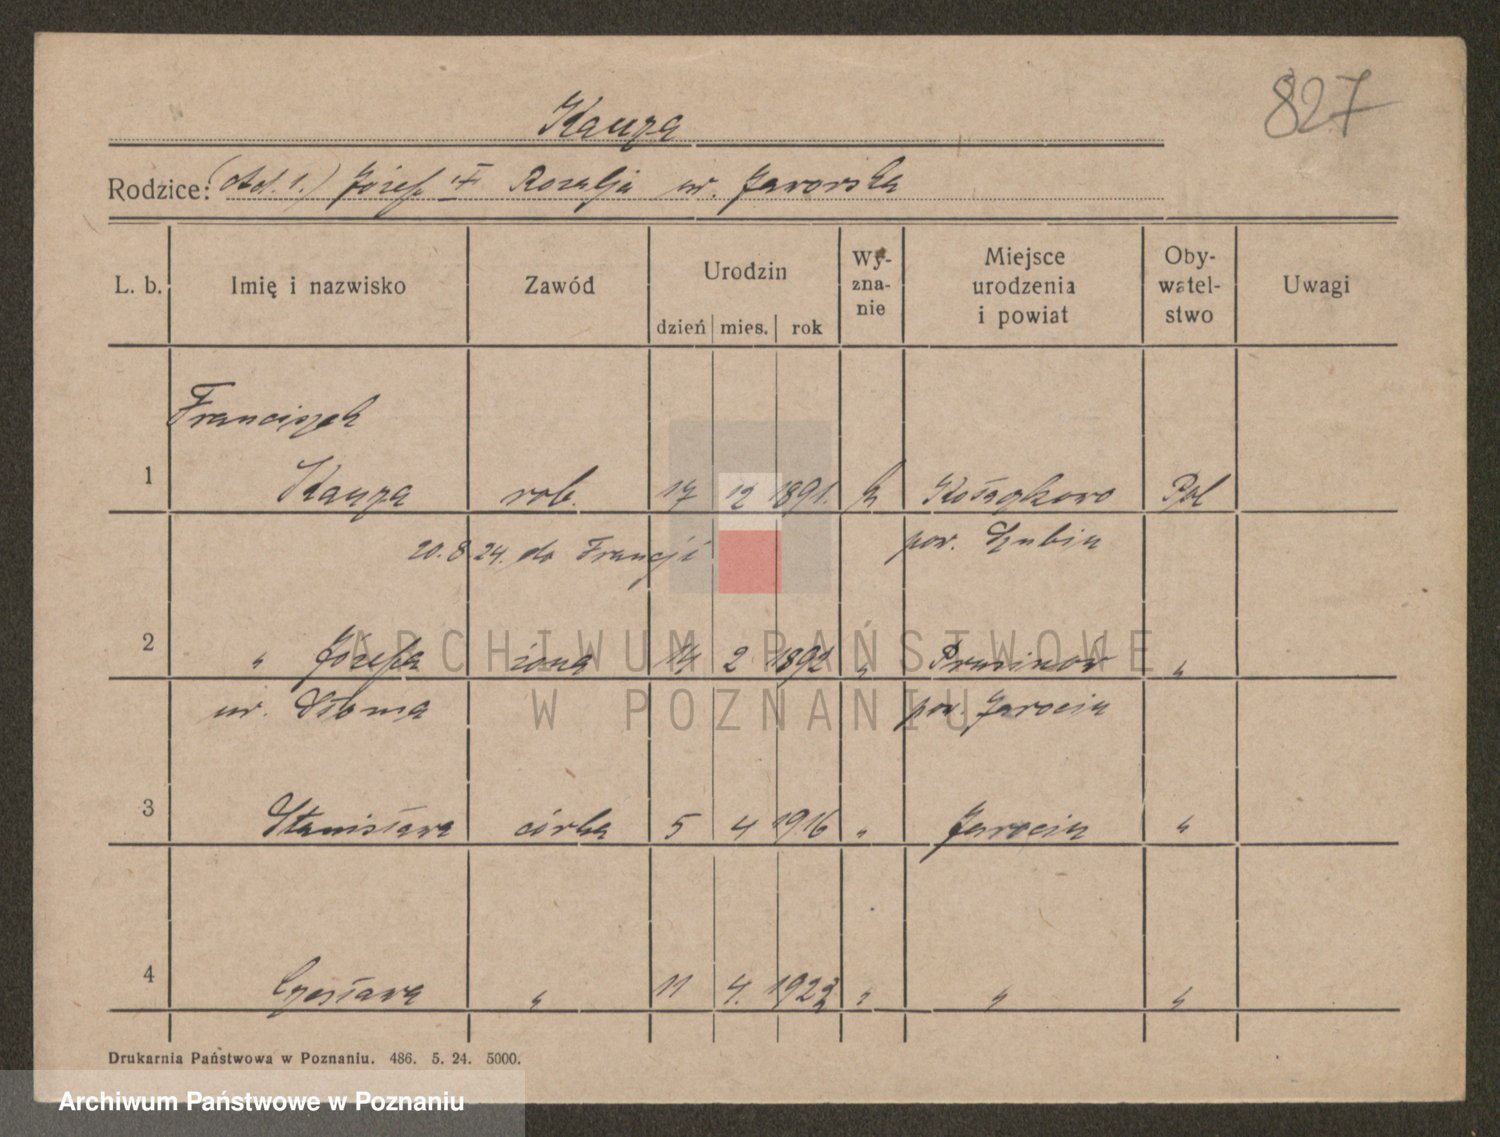 827
Kauza
Rodzice: (ad. 1.) Józef i Rozalja ur. Jaworska
L. b. Imię i nazwisko Zawód Urodzin dzień mies. rok Wy-zna-nie Miejsce urodzenia i powiat Oby-watel-stwo Uwagi
Franciszek
1 Kauza rob. 17 12 1891. k Pol
20.8.24. do Francji pow. Szubin
2 " Józefa żona 14 2 1892 " "
ur. pow. Jarocin
3 Stanisława córka 5 4 1916 " Jarocin "
4 Czesława " 11 4. 1922 " " "
Drukarnia Państwowa w Poznaniu. 486. 5. 24. 5000.
ARCHIWUM PAŃSTWOWE
W POZNANIU
Archiwum Państwowe w Poznaniu